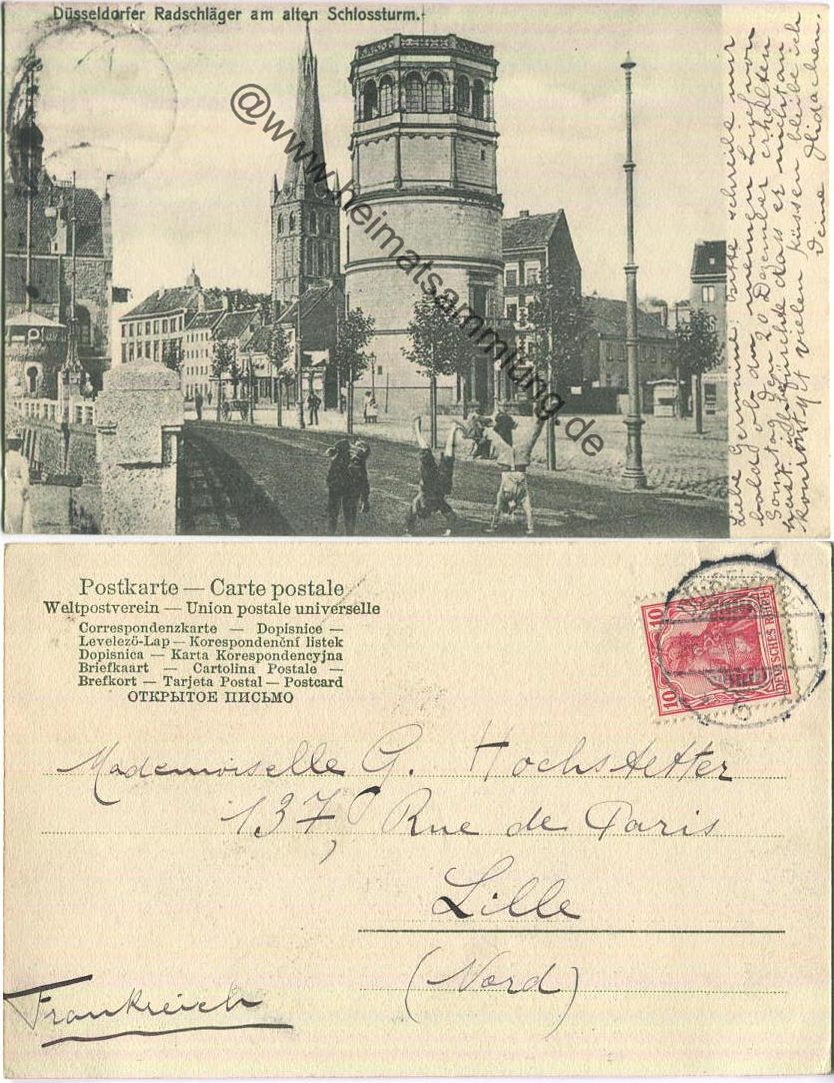 Düsseldorfer Radschläger am alten Schlossturm.
@www.heimatsammlung.de
Liebe Germaine. Bitte schreibe mir
bald ob du meinen Brief von
Sonntag den 20 Dezember erhalten
hast. Ich fürchte dass er
vielen küssen bleibe ich
deine
Postkarte — Carte postale
Weltpostverein — Union postale universelle
Correspondenzkarte — Dopisnice —
Levelező-Lap — Korespondenční lístek
Dopisnica — Karta Korespondencyjna
Briefkaart — Cartolina Postale —
Brefkort — Tarjeta Postal — Postcard
ОТКРЫТОЕ ПИСЬМО
10 10
DEUTSCHES REICH
Mademoiselle G. Hochstetter
137, Rue de Paris
Lille
(Nord)
Frankreich